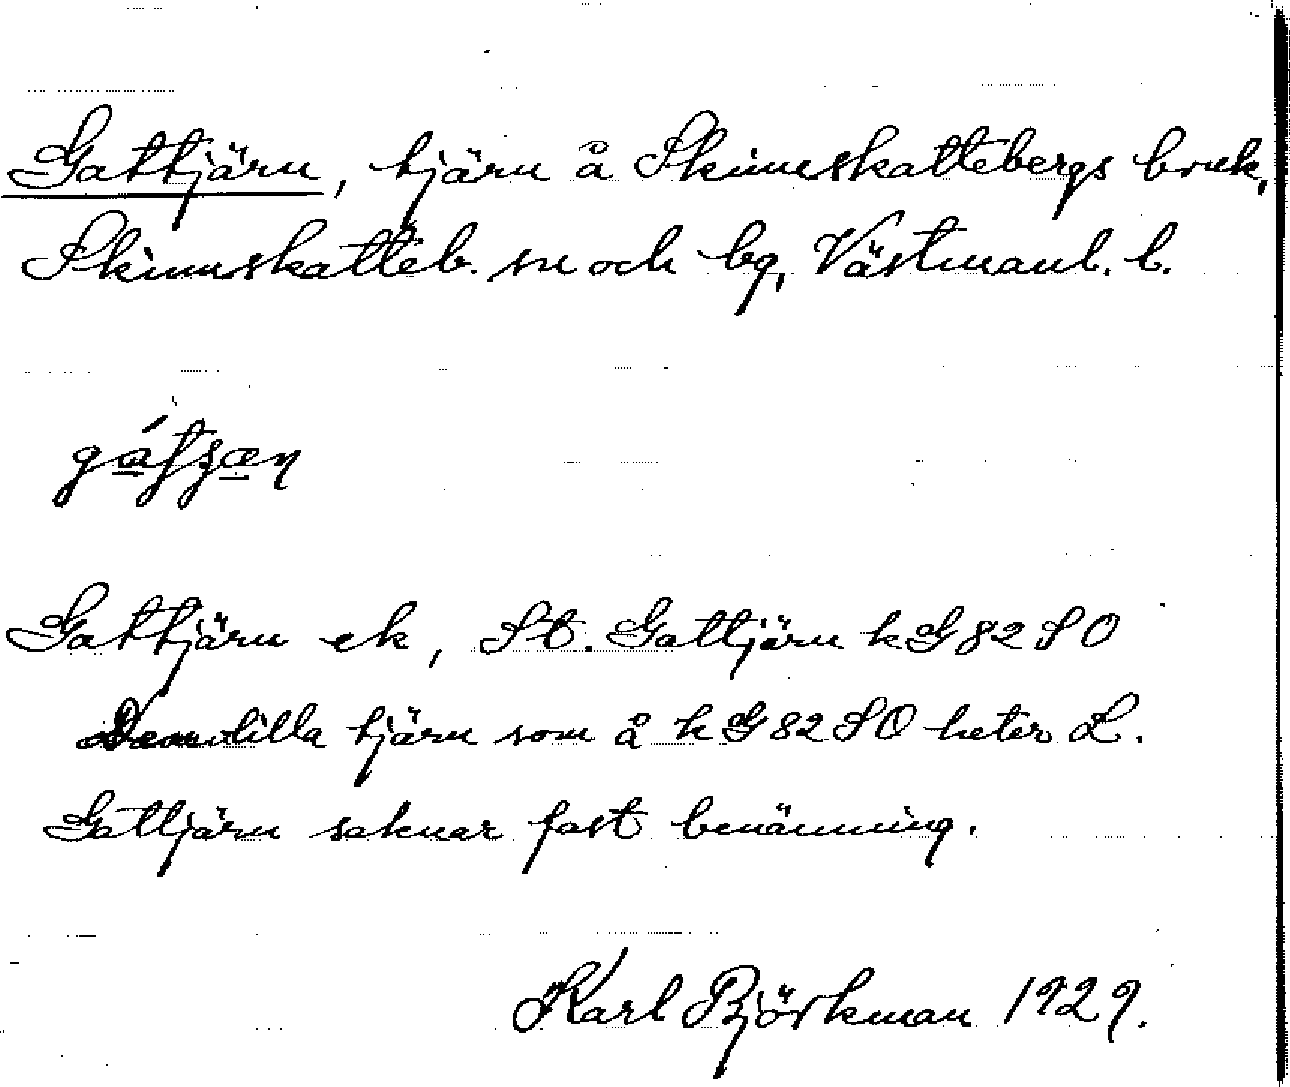 Gattjärn, tjärn å Skinnskattebergs bruk,
Skinnskatteb. sn och bg, Västmanl. l.
Gattjärn ek, St. Gattjärn kG82SO
Den lilla tjärn som å kG82SO heter L.
Gattjärn saknar fast benämning.
Karl Björkman 1929.